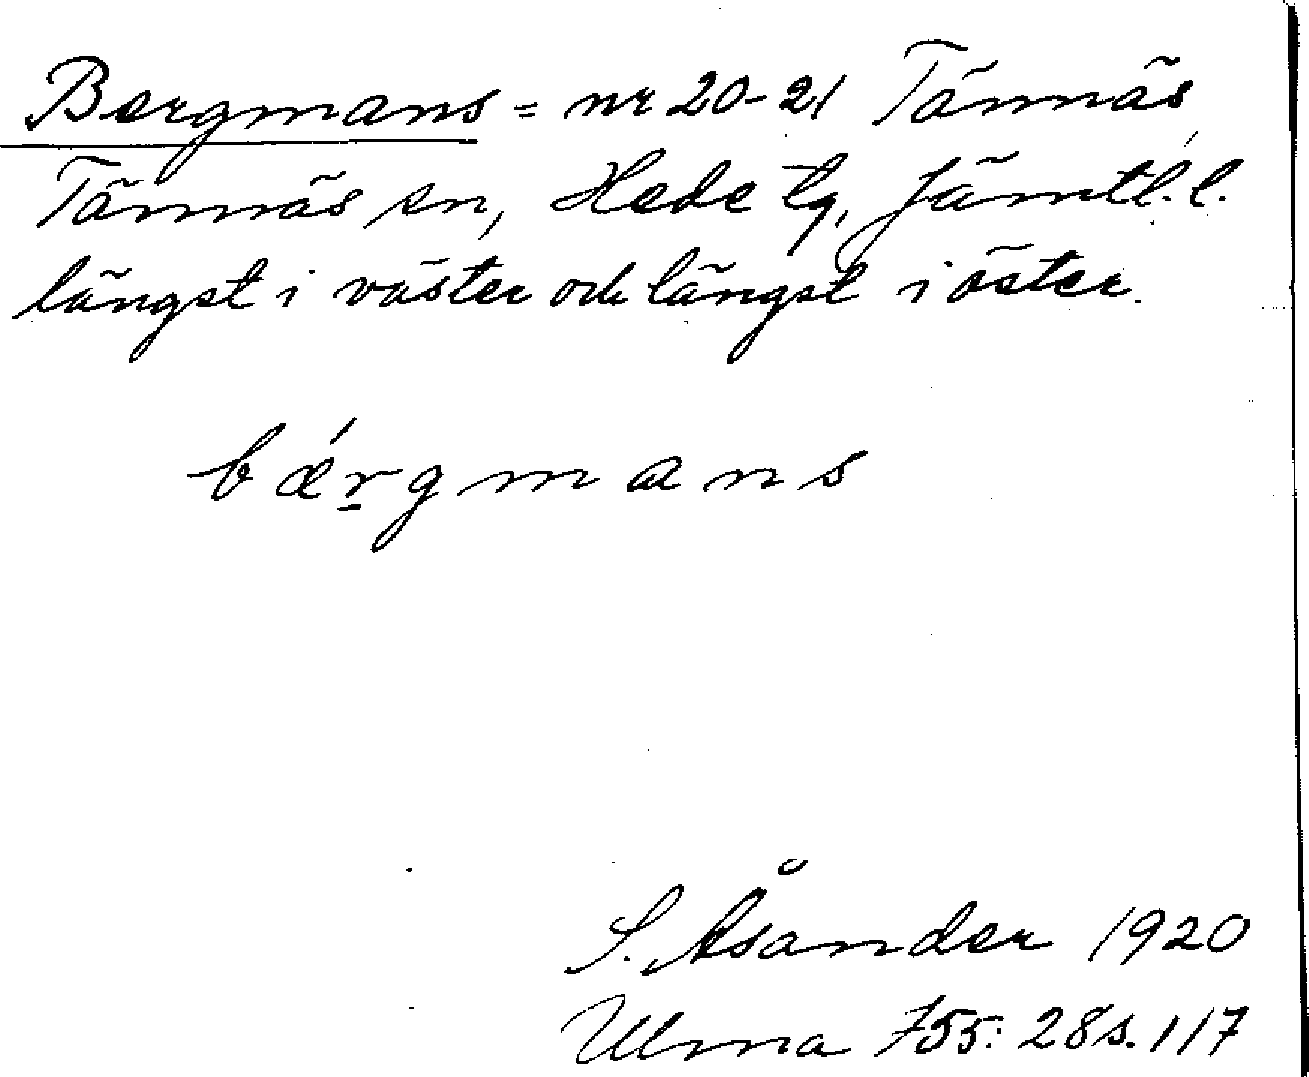 Bergmans = nr 20-21 Tännäs,
Tännäs sn, Hede tg, Jämtl. l.
längst i väster och längst i öster.
bǽr̲gmans
S. Åsander 1920
Ulma 755: 28 s. 117